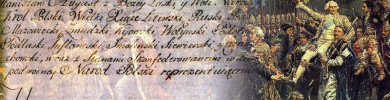 Stanisław August z Bożey Łaski y Woli Narodu
Król Polski, Wielki Xiąże Litewski, Ruski, Pruski
Mazowiecki, Żmudzki, Kijowski, Wołyński, Podolski
Podlaski, Inflantski, Smoleński, Siewierski, y Czernie-
chowski, wraz z Stanami Skonfederowanemi w liczbie
podwoyney Naród Polski reprezentuiącemi